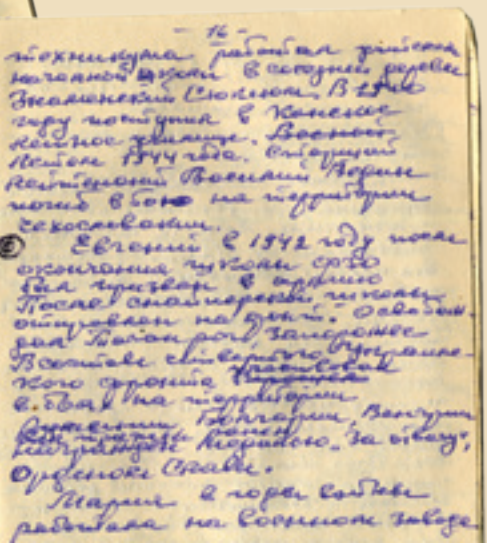 - 16 -
техникума работал учителем
начальной школы в соседней деревне
Знаменский Сюльюм. В 1940
году поступил в Канское
училище.
Летом 1944 года. Старший
лейтенант Василий
погиб в бою на территории
Чехословакии.
Евгений в 1942 году после
окончания школы сразу
был призван в армию
После снайперской школы
отправлен на фронт. Освобож-
дал Таганрог, Запорожье
В составе четвертого Украинс-
кого фронта участвовал
в боях на территории
Болгарии, Венгрии
награжден Медалью "За отвагу",
Орденом Славы.
Мария в годы войны
работала на военном заводе